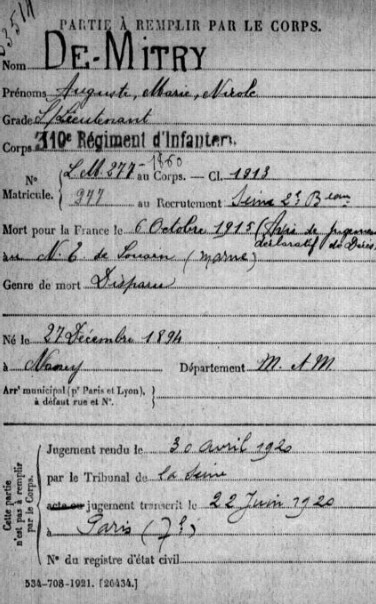 PARTIE À REMPLIR PAR LE CORPS.
Nom DE-MITRY
Prénoms Auguste, Marie, Nicole
Grade S/Lieutenant
Corps 310e Régiment d'Infanterie
1860
N° L.M. 277 au Corps. — Cl. 1913
Matricule. 977 au Recrutement Seine 2e Beau
Mort pour la France le 6 Octobre 1915 (Avis de Jugement
déclaratif de Décès.
au N. E de Souain (Marne)
Genre de mort Disparu
Né le 27 Décembre 1894
à Nancy Département M. et M.
Arrt municipal (pr Paris et Lyon),
à défaut rue et N°.
Cette partie
n'est pas à remplir
par le Corps.
Jugement rendu le 30 avril 1920
par le Tribunal de la Seine
acte ou jugement transcrit le 22 Juin 1920
à Paris (7e)
N° du registre d'état civil
534-708-1921. [26434.]